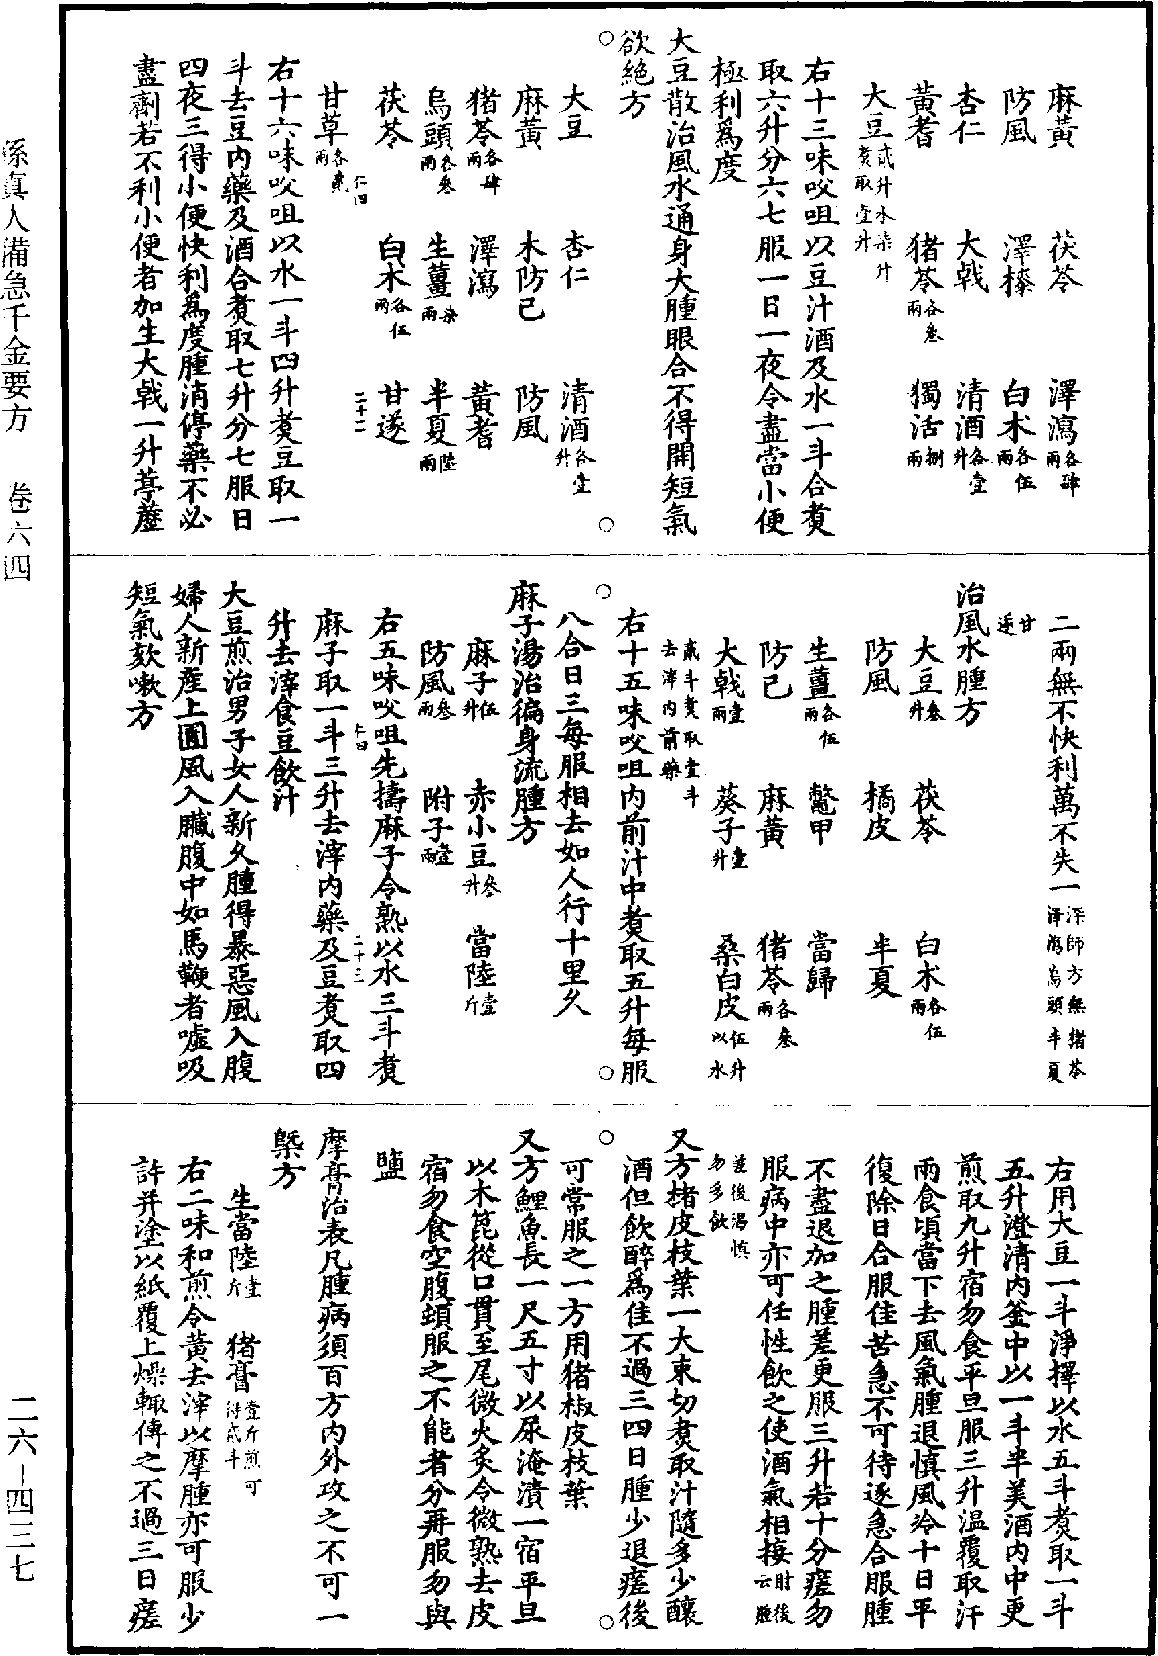 麻黃　茯苓　澤瀉各肆兩
防風　澤㯶　白朮各伍兩
杏仁　大戟　清酒各壹升
黃耆　猪苓各叁兩　獨活捌兩
大豆貳升水柒升煑取壹升
右十三味㕮咀以豆汁酒及水一斗合煑
取六升分六七服一日一夜令盡當小便
極利爲度
大豆散治風水通身大腫眼合不得開短氣
欲絶方
大豆　杏仁　清酒各壹升
麻黃　木防己　防風
猪苓各肆兩　澤瀉　黃耆
烏頭各叁兩　生薑柒兩　半夏陸兩
茯苓　白朮各伍兩　甘遂
甘草各貳兩
仁四　二十二
右十六味㕮咀以水一斗四升煑豆取一
斗去豆內藥及酒合煑取七升分七服日
四夜三得小便快利爲度腫消停藥不必
盡劑若不利小便者加生大戟一升葶藶
二兩無不快利萬不失一深師方無猪苓澤瀉烏頭半夏
甘遂
治風水腫方
大豆叁升　茯苓　白朮各伍兩
防風　橘皮　半夏
生薑各伍兩　鼈甲　當歸
防己　麻黃　猪苓各叁兩
大戟壹兩　葵子壹升　桑白皮伍升以水
貳斗煑取壹斗去滓內前藥
右十五味㕮咀內前汁中煑取五升每服
八合日三每服相去如人行十里久
麻子湯治徧身流腫方
麻子伍升　赤小豆叁升　當陸壹斤
防風叁兩　附子壹兩
右五味㕮咀先擣麻子令熟以水三斗煑
麻子取一斗三升去滓內藥及豆煑取四
卜四　二十三
升去滓食豆飲汁
大豆煎治男子女人新久腫得暴惡風入腹
婦人新產上圊風入臟腹中如馬鞭者噓吸
短氣欬嗽方
右用大豆一斗淨擇以水五斗煑取一斗
五升澄清內釜中以一斗半美酒內中更
煎取九升宿勿食平旦服三升温覆取汗
兩食頃當下去風氣腫退慎風冷十日平
復除日合服佳若急不可待逐急合服腫
不盡退加之腫差更服三升若十分瘥勿
服病中亦可任性飲之使酒氣相接肘後云腫
差後渴慎勿多飲
又方楮皮枝葉一大束切煑取汁隨多少釀
酒但飲醉爲佳不過三四日腫少退瘥後
可常服之一方用猪椒皮枝葉
又方鯉魚長一尺五寸以尿淹漬一宿平旦
以木箆從口貫至尾微火炙令微熟去皮
宿勿食空腹頓服之不能者分再服勿與
鹽
摩膏治表凡腫病須百方內外攻之不可一
槩方
生當陸壹斤　猪膏壹斤煎可得貳斗
右二味和煎令黃去滓以摩腫亦可服少
許并塗以紙覆上燥輒傅之不過三日瘥
孫真人備急千金要方　卷六四
二六—四三七